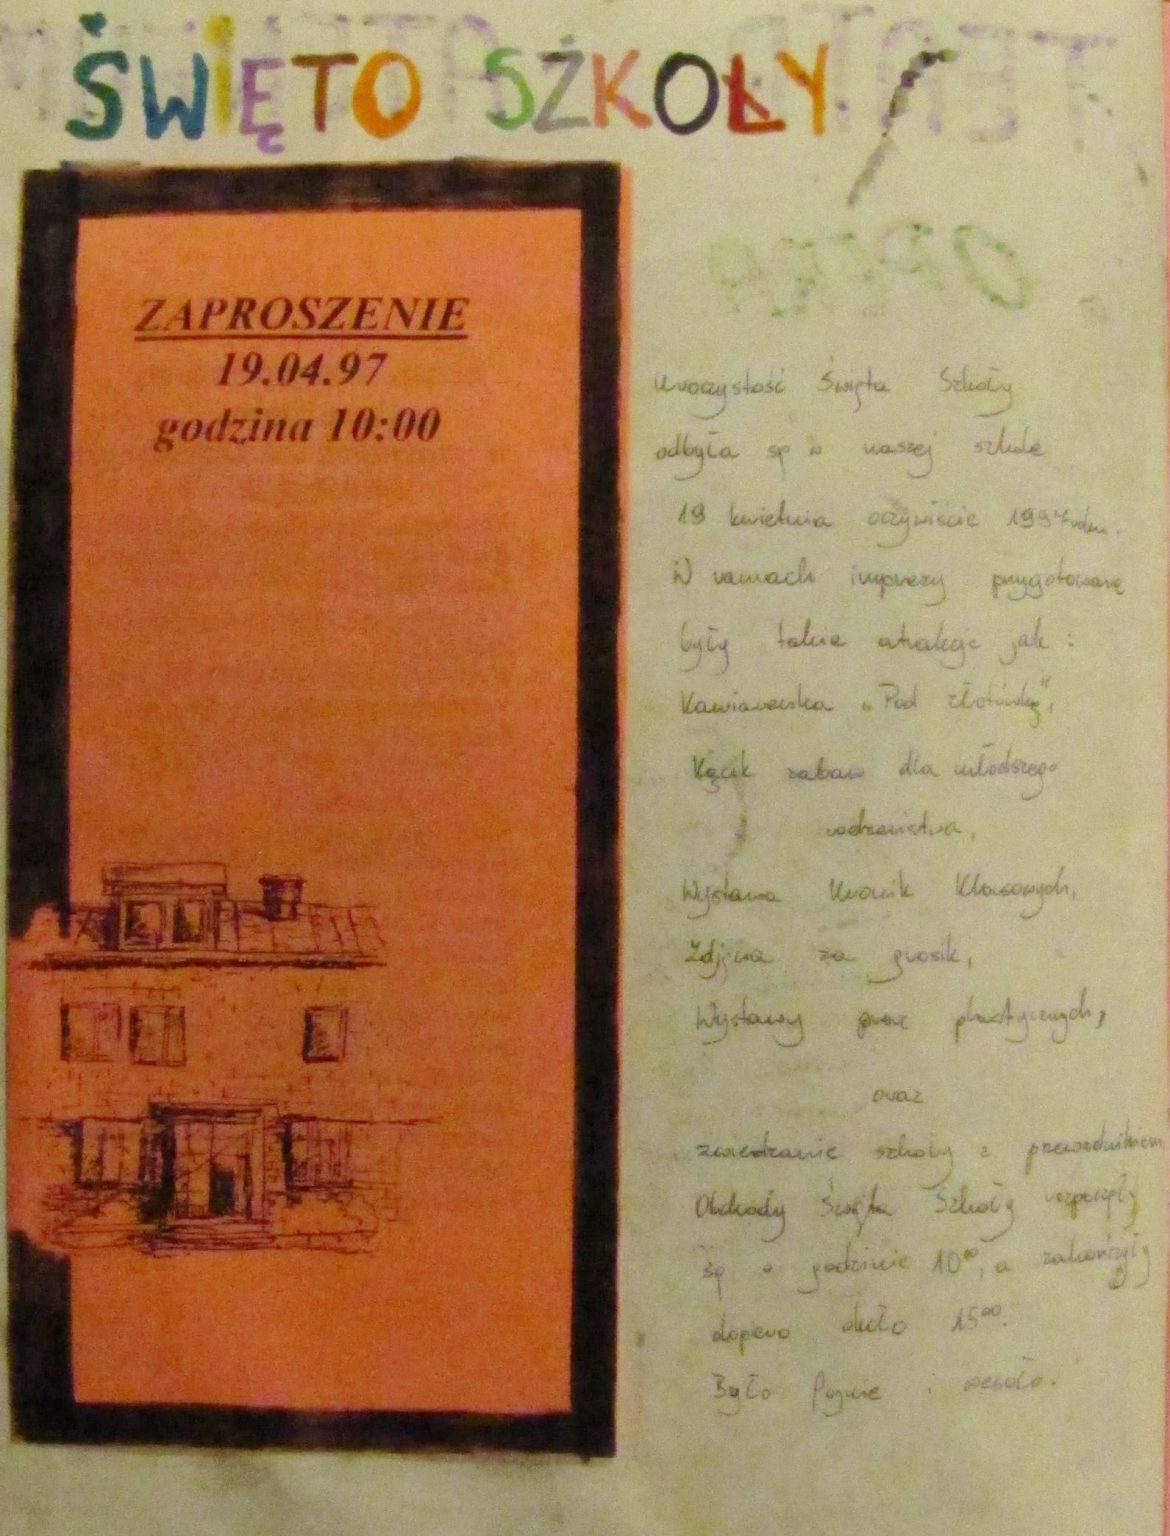 ŚWIĘTO SZKOŁY
ZAPROSZENIE
19.04.97
godzina 10:00
Uroczystość Święta Szkoły
odbyła się w naszej szkole
19 kwietnia oczywiście 1997 roku.
W ramach imprezy przygotowane
były takie atrakcje jak :
Kawiarenka „Pod złotówką",
Kącik zabaw dla młodszego
rodzeństwa,
Wystawa Kronik Klasowych,
Zdjęcia za grosik,
Wystawy prac plastycznych,
oraz
zwiedzanie szkoły z przewodnikiem
Obchody Święta Szkoły rozpoczęły
się o godzinie 10⁰⁰, a zakończyły
dopiero około 15⁰⁰.
Było fajnie i wesoło.
OPERA